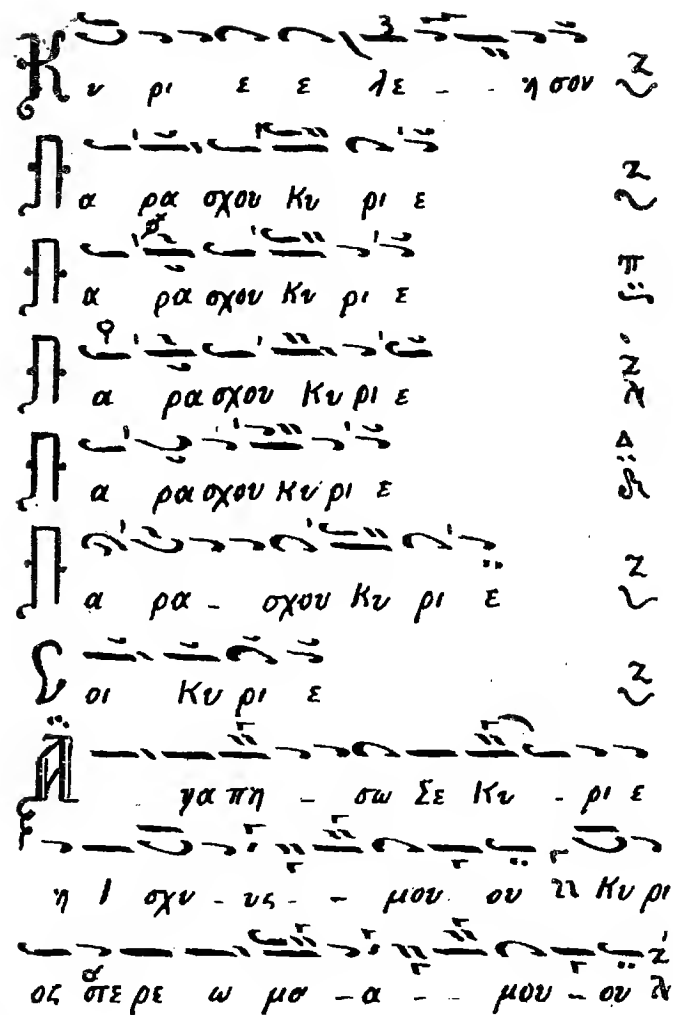 Κ υ ρι ε ε λε - - ή σον Ζ
Π α ρα σχου Κυ ρι ε Ζ
Π α ρα σχου Κυ ρι ε π
Π α ρα σχου Κυ ρι ε Ζ
Π α ρα σχου Κυ ρι ε Δ
Π α ρα - σχου Κυ ρι ε Ζ
Σ οι Κυ ρι ε Ζ
Α γα πη - σω Σε Κυ - ρι ε
η Ι σχυ - υς - - μου ου Κυ ρι
ος στε ρε ω μα - α - - μου - ου